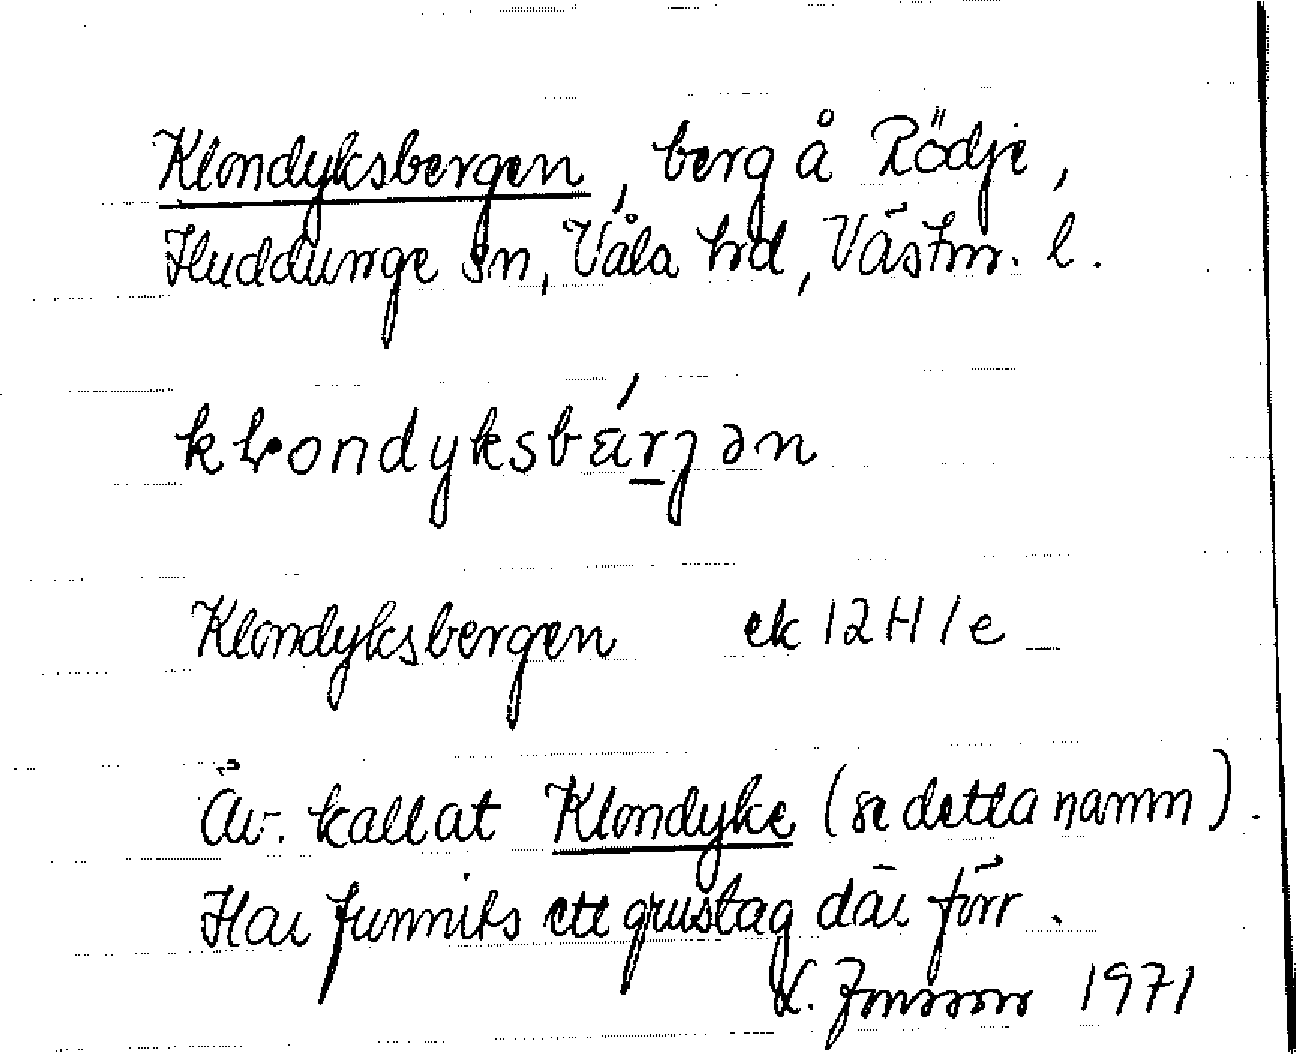 Klondyksbergen, berg å Rödje,
Huddunge sn, Våla hd, Västm. l.
kɬondyksbä́rjən
Klondyksbergen ek 12H 1e
Äv. kallat Klondyke (se detta namn).
Har funnits ett grustag där förr.
L. Jonsson 1971